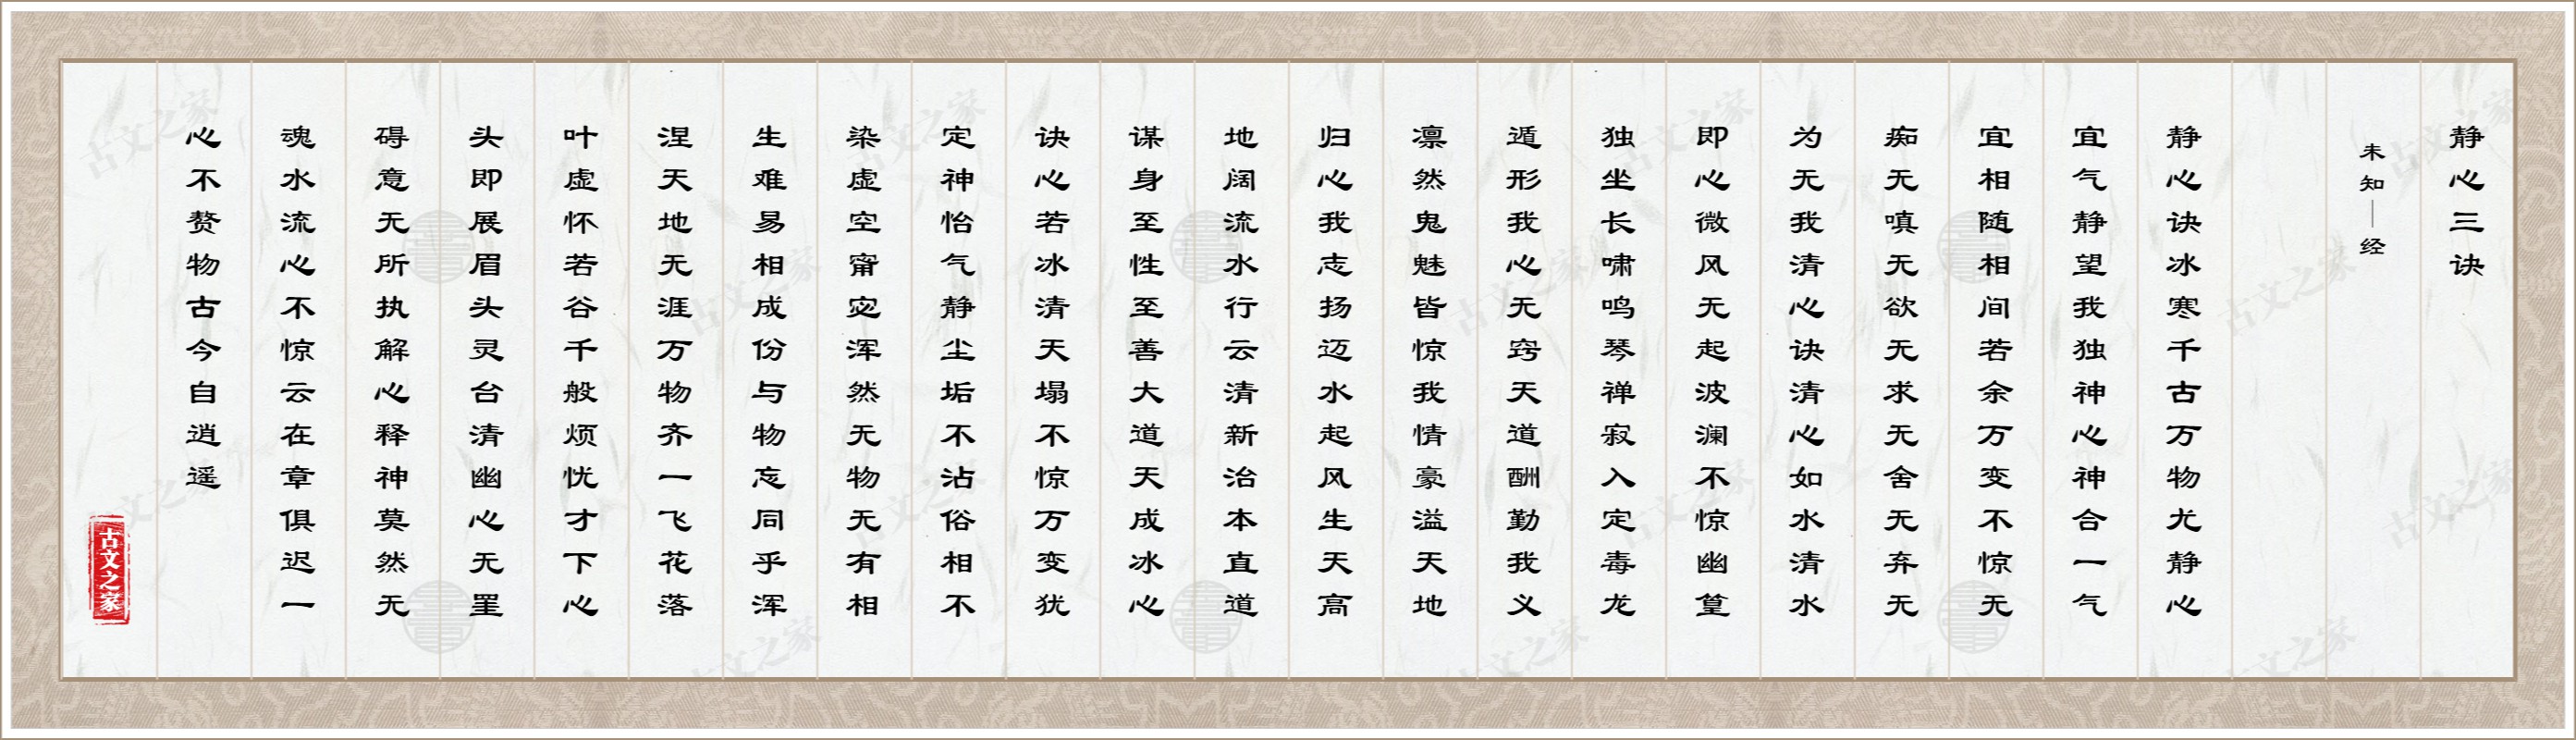 静心三诀
未知｜经
静心诀冰寒千古万物尤静心
宜气静望我独神心神合一气
宜相随相间若余万变不惊无
痴无嗔无欲无求无舍无弃无
为无我清心诀清心如水清水
即心微风无起波澜不惊幽篁
独坐长啸鸣琴禅寂入定毒龙
遁形我心无窍天道酬勤我义
凛然鬼魅皆惊我情豪溢天地
归心我志扬迈水起风生天高
地阔流水行云清新治本直道
谋身至性至善大道天成冰心
诀心若冰清天塌不惊万变犹
定神怡气静尘垢不沾俗相不
染虚空甯宓浑然无物无有相
生难易相成份与物忘同乎浑
涅天地无涯万物齐一飞花落
叶虚怀若谷千般烦忧才下心
头即展眉头灵台清幽心无罣
碍意无所执解心释神莫然无
魂水流心不惊云在章俱迟一
心不赘物古今自逍遥
古文之家